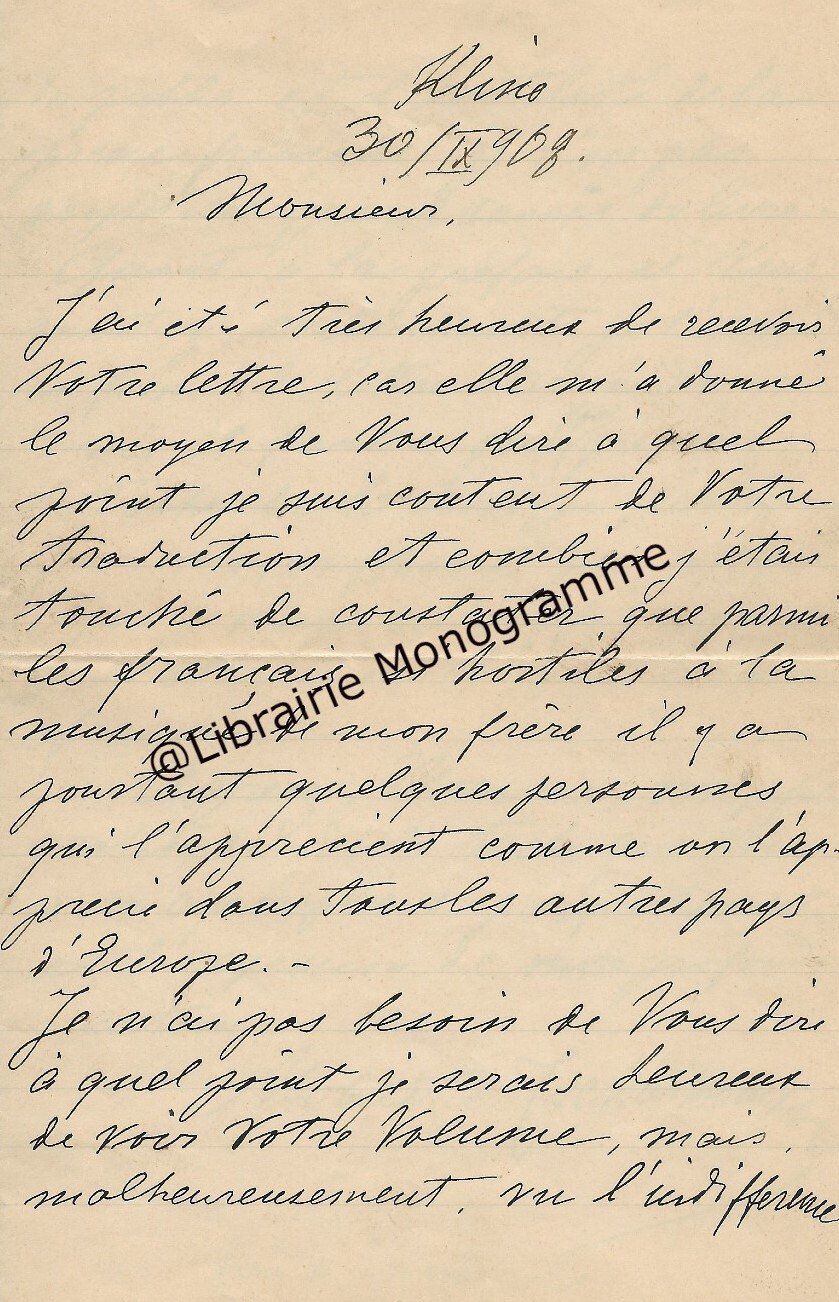 Klino
30/IX 908.
Monsieur,
J'ai eté très heureux de recevoir
Votre lettre, car elle m'a donné
le moyen de Vous dire à quel
point je suis content de Votre
traduction et combien j'étais
touché de constater que parmi
les français si hostiles à la
musique de mon frère il y a
pourtant quelques personnes
qui l'apprecient comme on l'ap-
precie dans tous les autres pays
d'Europe. –
Je n'ai pas besoin de Vous dire
à quel point je serais heureux
de voir Votre Volume, mais,
malheureusement, vu l'indifference
@Librairie Monogramme